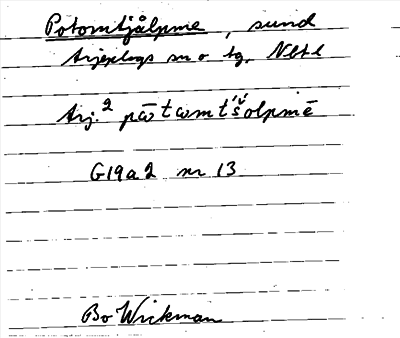 Potomtjålpme, sund
Arjeplogs sn o tg, Nbtl
Arj.2 pā̊tωmt́š́olpmē
G19a2 nr 13
Bo Wickman